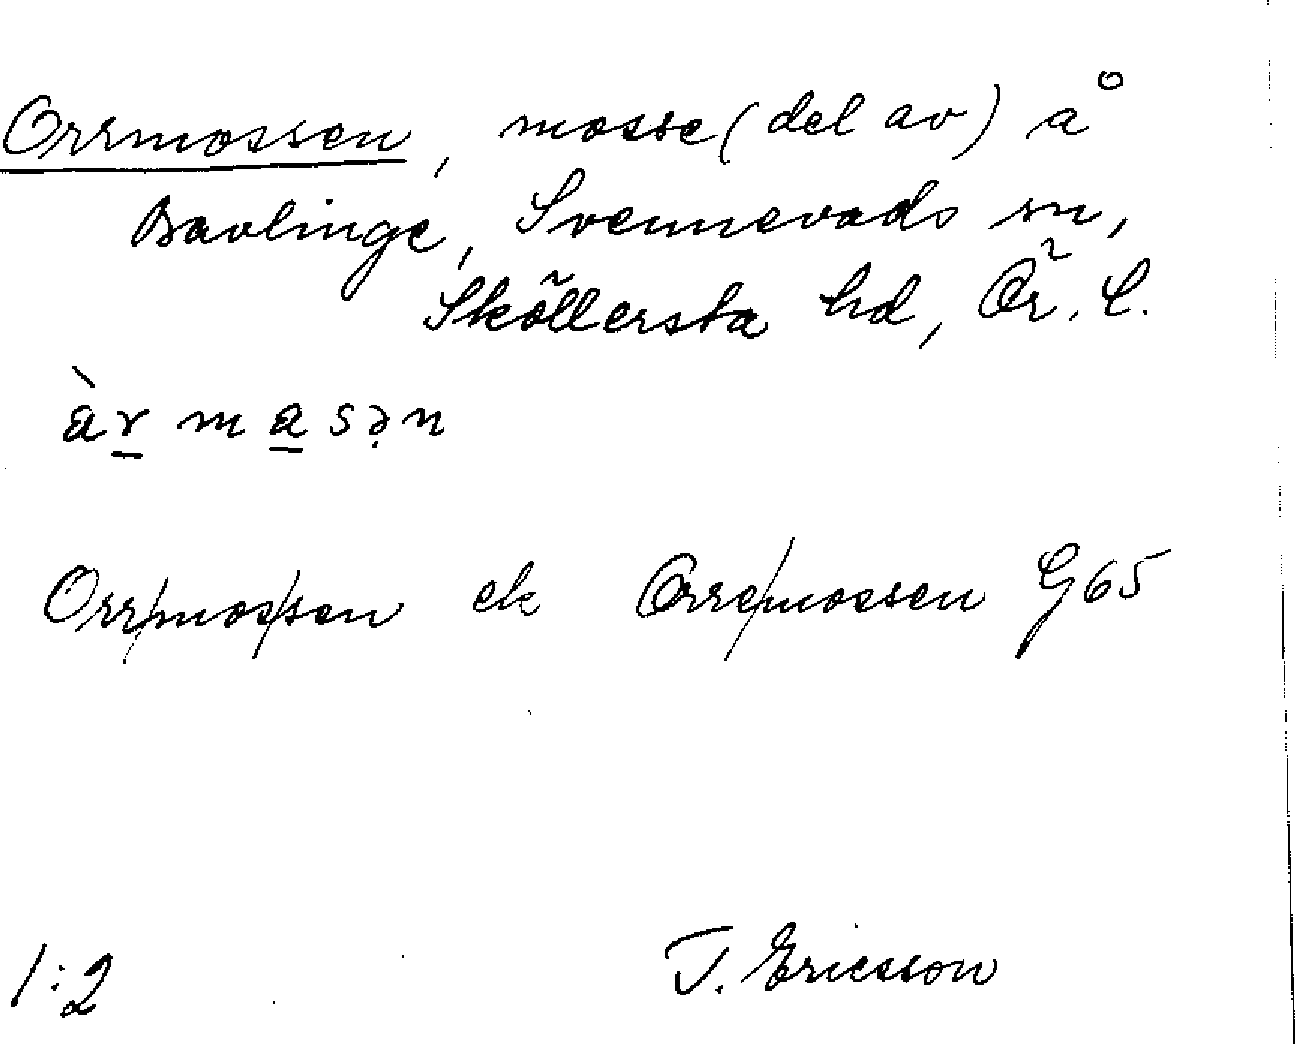 Orrmossen, mosse (del av) å
Bavlinge, Svennevads sn,
Sköllersta hd, Ör. L.
àr masən
Orr/mos/sen ek Orre/mossen G65
1:2 T. Ericsson